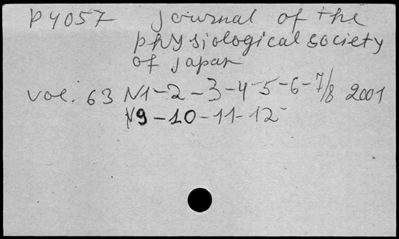 P4057 Journal of the
physiological society
of Japan
vol. 63 N1-2-3-4-5-6-7/8 2001
N9-10-11-12